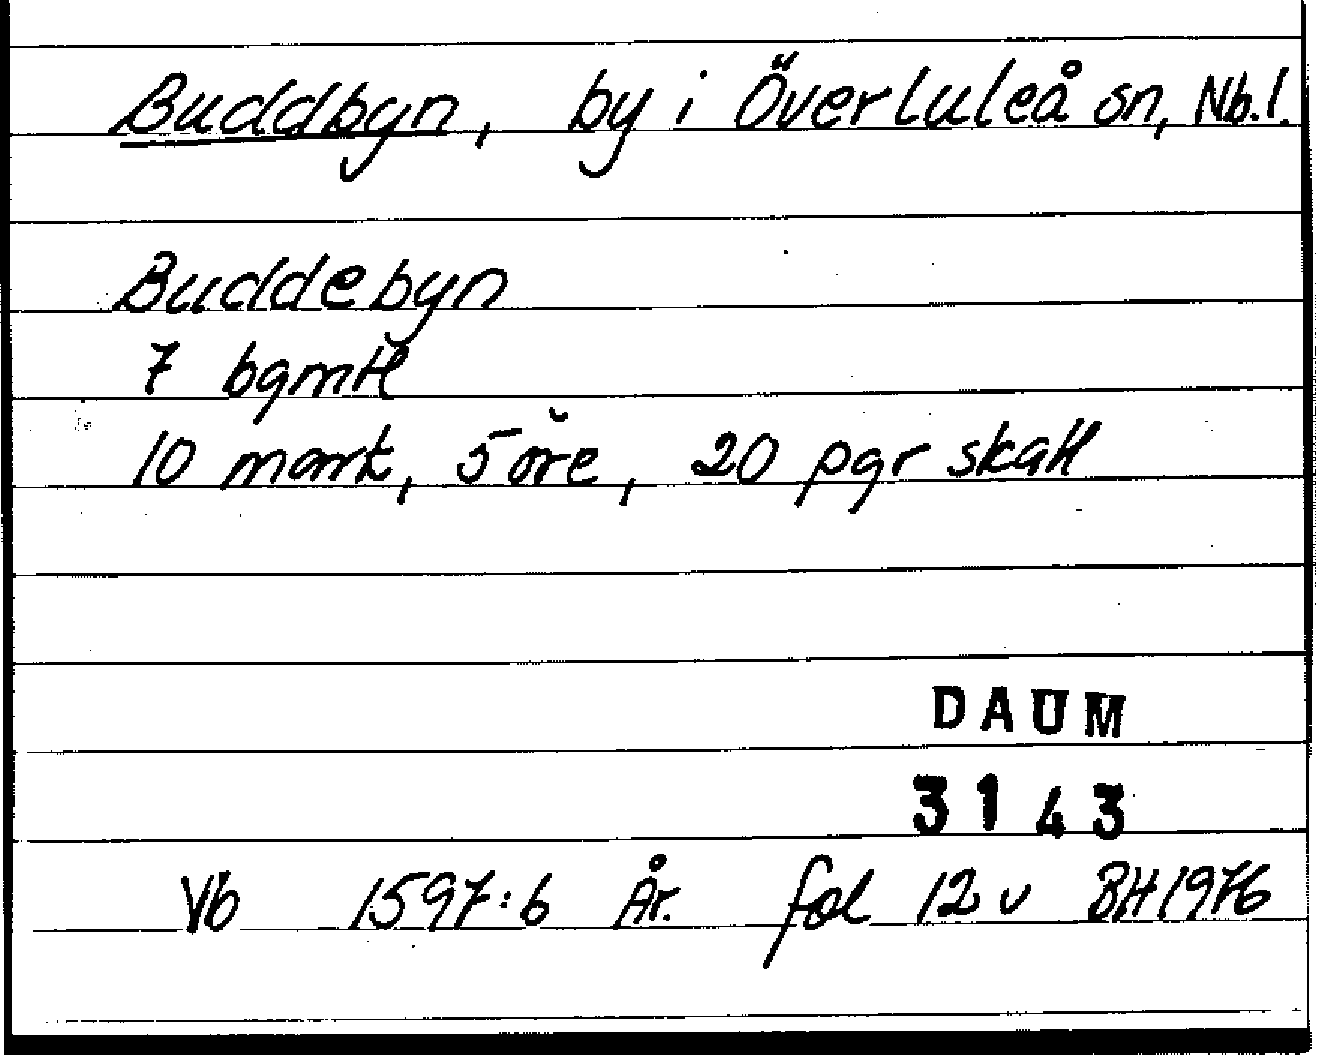 Buddbyn, by i Överluleå sn, Nb.l.
Buddebyn
7 bgmtl
10 mark, 5 öre, 20 pgr skatt
DAUM
3143
Vb 1597:6 År. fol 12 v BH 1976